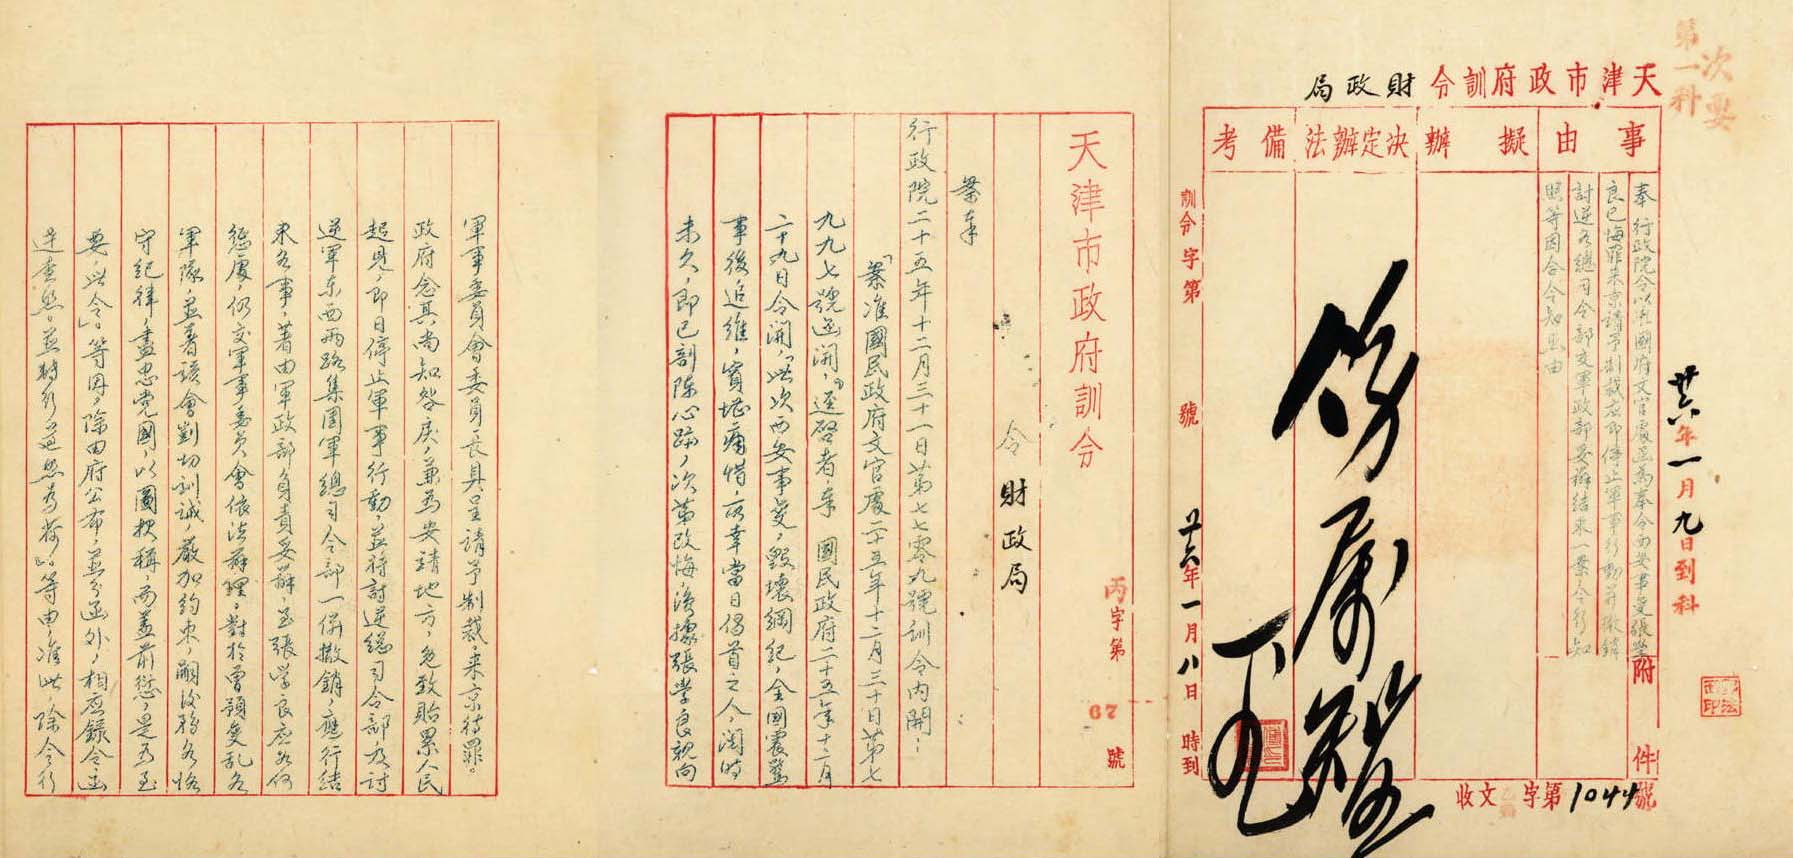 天津市政府訓令財政局
事由
擬辦
決定辦法
備考
奉 行政院令以准國府文官處函為奉令西安事變張學
良已悔罪來京請予制裁應即停止軍事行動并撤銷
討逆各總司令部交軍政部妥辦結束一案令行知
照等因合令知照由
附件
訓令字第 號
廿六年一月八日 時到
收文 字第1044號
廿六年一月九日到科
第一科
次要
天津市政府訓令
丙字第67號
令財政局
案奉
行政院二十五年十二月三十一日第七七零九號訓令內開：
「案准國民政府文官處二十五年十二月三十日第七
九九七號函開：『逕啓者，奉 國民政府二十五年十二月
二十九日令開，「此次西安事變，毀壞綱紀，全國震驚
事後追維，實堪痛惜，茲幸當日倡首之人，閱時
未久，即已剖陳心跡，次第改悔，後據張學良親向
軍事委員會委員長具呈請予制裁，來京待罪。
政府念其尚知咎戾，兼為安靖地方，免致貽累人民
起見，即日停止軍事行動，並將討逆總司令部，及討
逆軍東西兩路集團軍總司令部一併撤銷，應行結
束各事，著由軍政部負責妥辦，至張學良應如何
懲處，仍交軍事委員會依法辦理，對於曾預變亂各
軍隊，並著該會剴切訓誡，嚴加約束，嗣後務各恪
守紀律，盡忠黨國，以圖救稱，而蓋前愆，是為至
要，此令」。等因。除由府公布，並分函外，相應錄令函
達查照。並轉行遵照為荷。』等由，准此，除令行